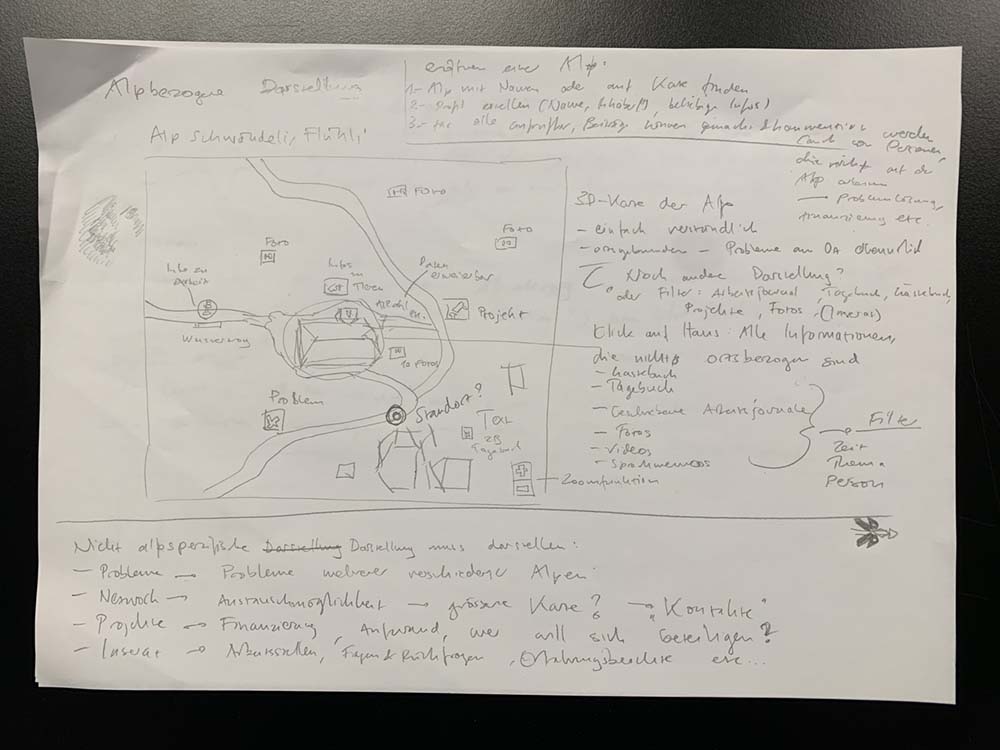 Alpbezogene Darstellung
eröffnen einer Alp:
1.- Alp mit Namen oder auf Karte finden
2.- Profil erstellen (Name, beliebige Infos)
3.- für alle können gemacht & kommentiert werden
(auch von Personen,
die nicht auf der
Alp
→ Problemlösung,
Finanzierung etc
Alp Schwändeli, Flühli
Foto
Foto
Foto
Infos zu
Tieren
Daten
erweiterbar
Infos zu
Projekt
Wasserweg
10 Fotos
Problem
Standort?
Text
zB
Tagebuch
Zoomfunktion
3D-Karte der Alp
- einfach verständlich
- ortsgebunden - Probleme an Ort
Noch andere Darstellung?
oder Filter: Arbeitsjournal, Tagebuch, Gästebuch,
Projekte, Fotos, (Inserat)
Klick auf Haus: Alle Informationen,
die nicht ortsbezogen sind
- Gästebuch
- Tagebuch
- Geschriebene Arbeitsjournale
- Fotos
- Videos
- Sprachmemos
→ Filter
Zeit
Thema
Person
Nicht alpspezifische Darstellung Darstellung muss darstellen:
- Probleme → Probleme mehrerer verschiedener Alpen
- Netzwerk → Austauschmöglichkeit → grössere Karte? → "Kontakte"
- Projekte → Finanzierung, Aufwand, wer will sich beteiligen?
- Inserat → Arbeitsstellen, Fragen & Rückfragen, Erfahrungsberichte etc...